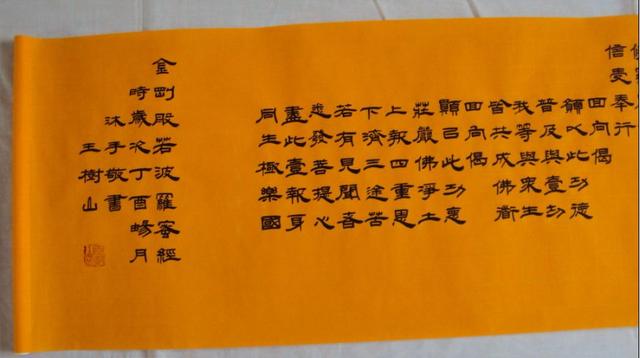 信受奉行
回向偈
願以此功德
普及與壹切
我等與眾生
皆共成佛道
回向偈
願已此功惪
莊嚴佛淨土
上報四重恩
下濟三途苦
若有見聞者
悉發菩提心
盡此壹報身
同生極樂國
金剛般若波羅蜜經
時歲次丁酉暢月
沐手敬書
王樹山